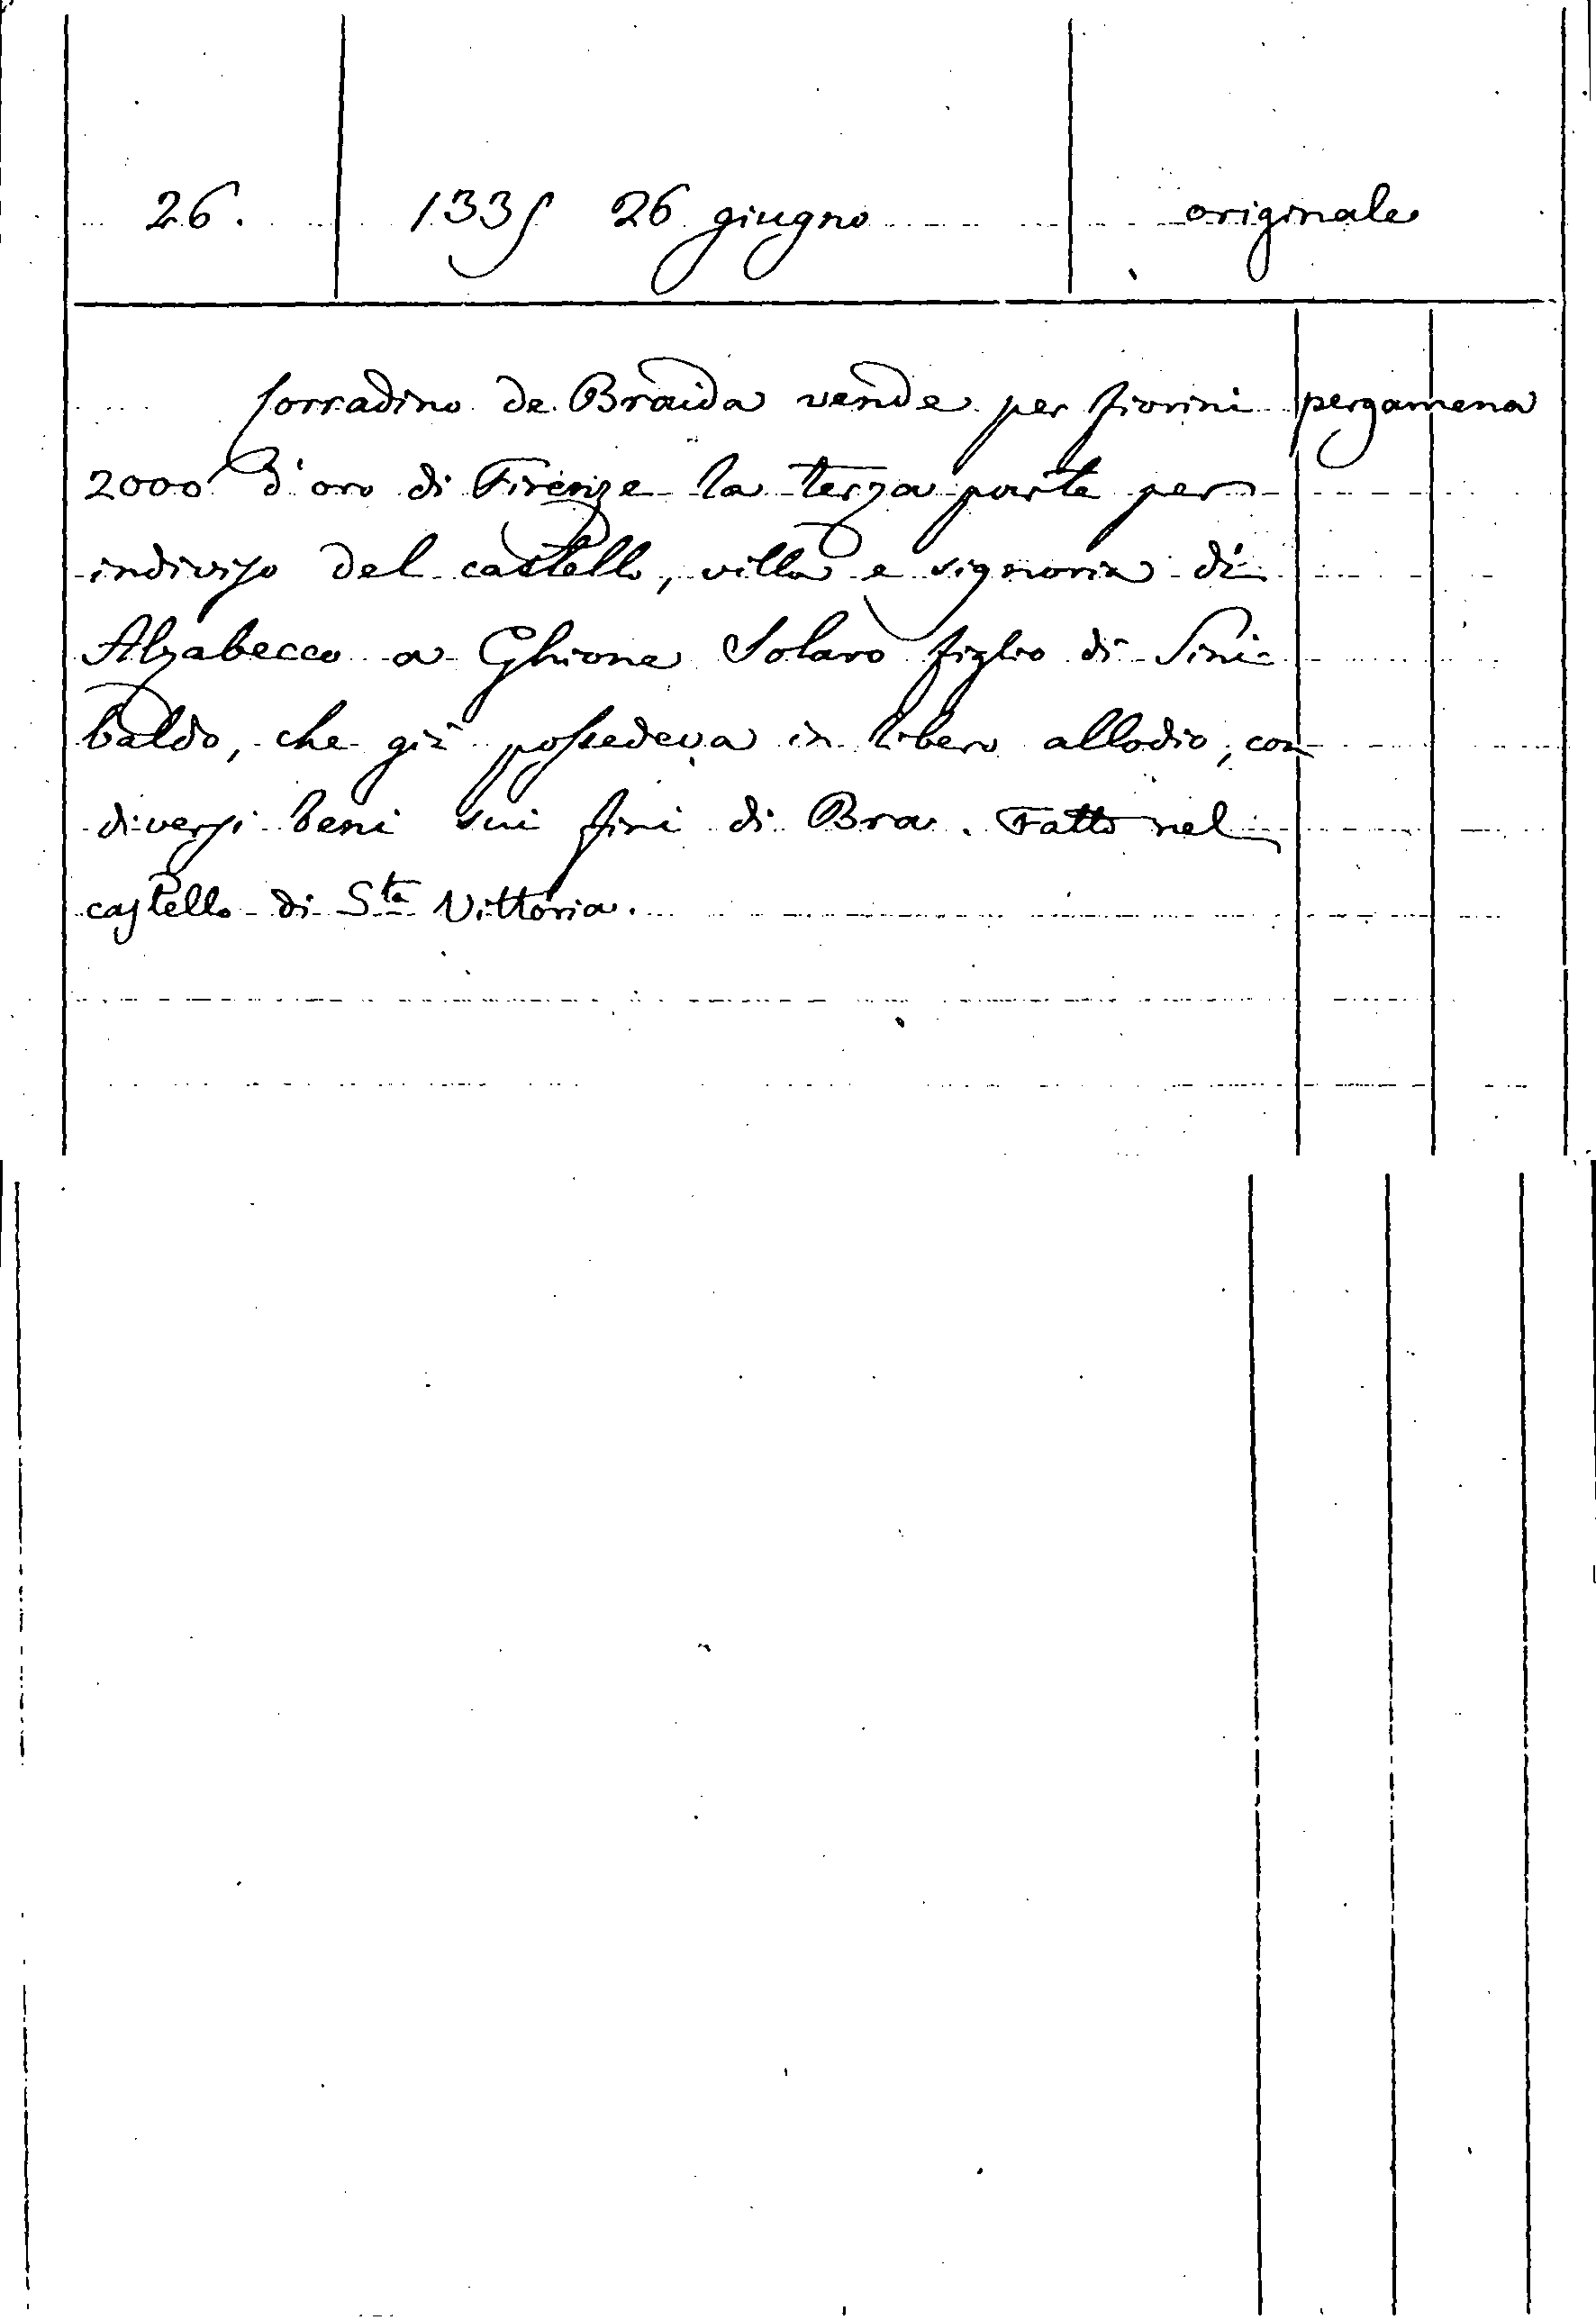 26. 1335 26 giugno originale
Corradino de Braida vende per fiorini pergamena
2000 d'oro di Firenze la terza parte per
indiviso del castello, villa e signoria di
Alzabecco a Ghione Solaro figlio di Sini-
baldo, che già possedeva in libero allodio, con
diversi beni sui fini di Bra. Fatto nel
castello di Sta Vittoria.